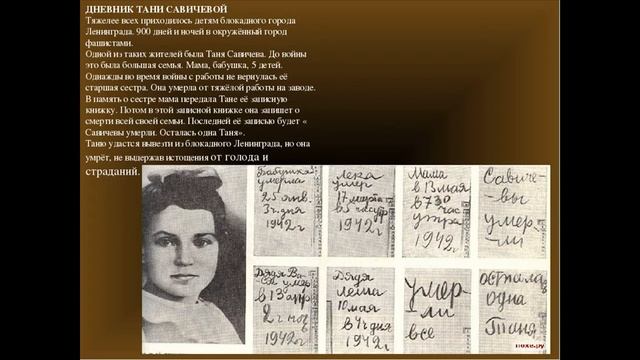 ДНЕВНИК ТАНИ САВИЧЕВОЙ
Тяжелее всех приходилось детям блокадного города
Ленинграда. 900 дней и ночей в окружённый город
фашистами.
Одной из таких жителей была Таня Савичева. До войны
это была большая семья. Мама, бабушка, 5 детей.
Однажды во время войны с работы не вернулась её
старшая сестра. Она умерла от тяжёлой работы на заводе.
В память о сестре мама передала Тане её записную
книжку. Потом в этой записной книжке она запишет о
смерти всей своей семьи. Последней её записью будет «
Савичевы умерли. Осталась одна Таня».
Таню удастся вывезти из блокадного Ленинграда, но она
умрёт, не выдержав истощения от голода и
страданий.
Бабушка
умерла
25 янв.
3 ч. дня
1942 г
Лека
умер
17 марта
в 5 час утр
1942 г
Мама
в 13 мая
в 7 30
час
утра
1942 г
Савиче-
вы
умер-
ли
Дядя Ва-
ся умер
в 13 апр
2 ч ноч
1942 г
Дядя
Леша
10 мая
в 4 ч дня
1942 г
Умер-
ли
все
остала
одна
Таня